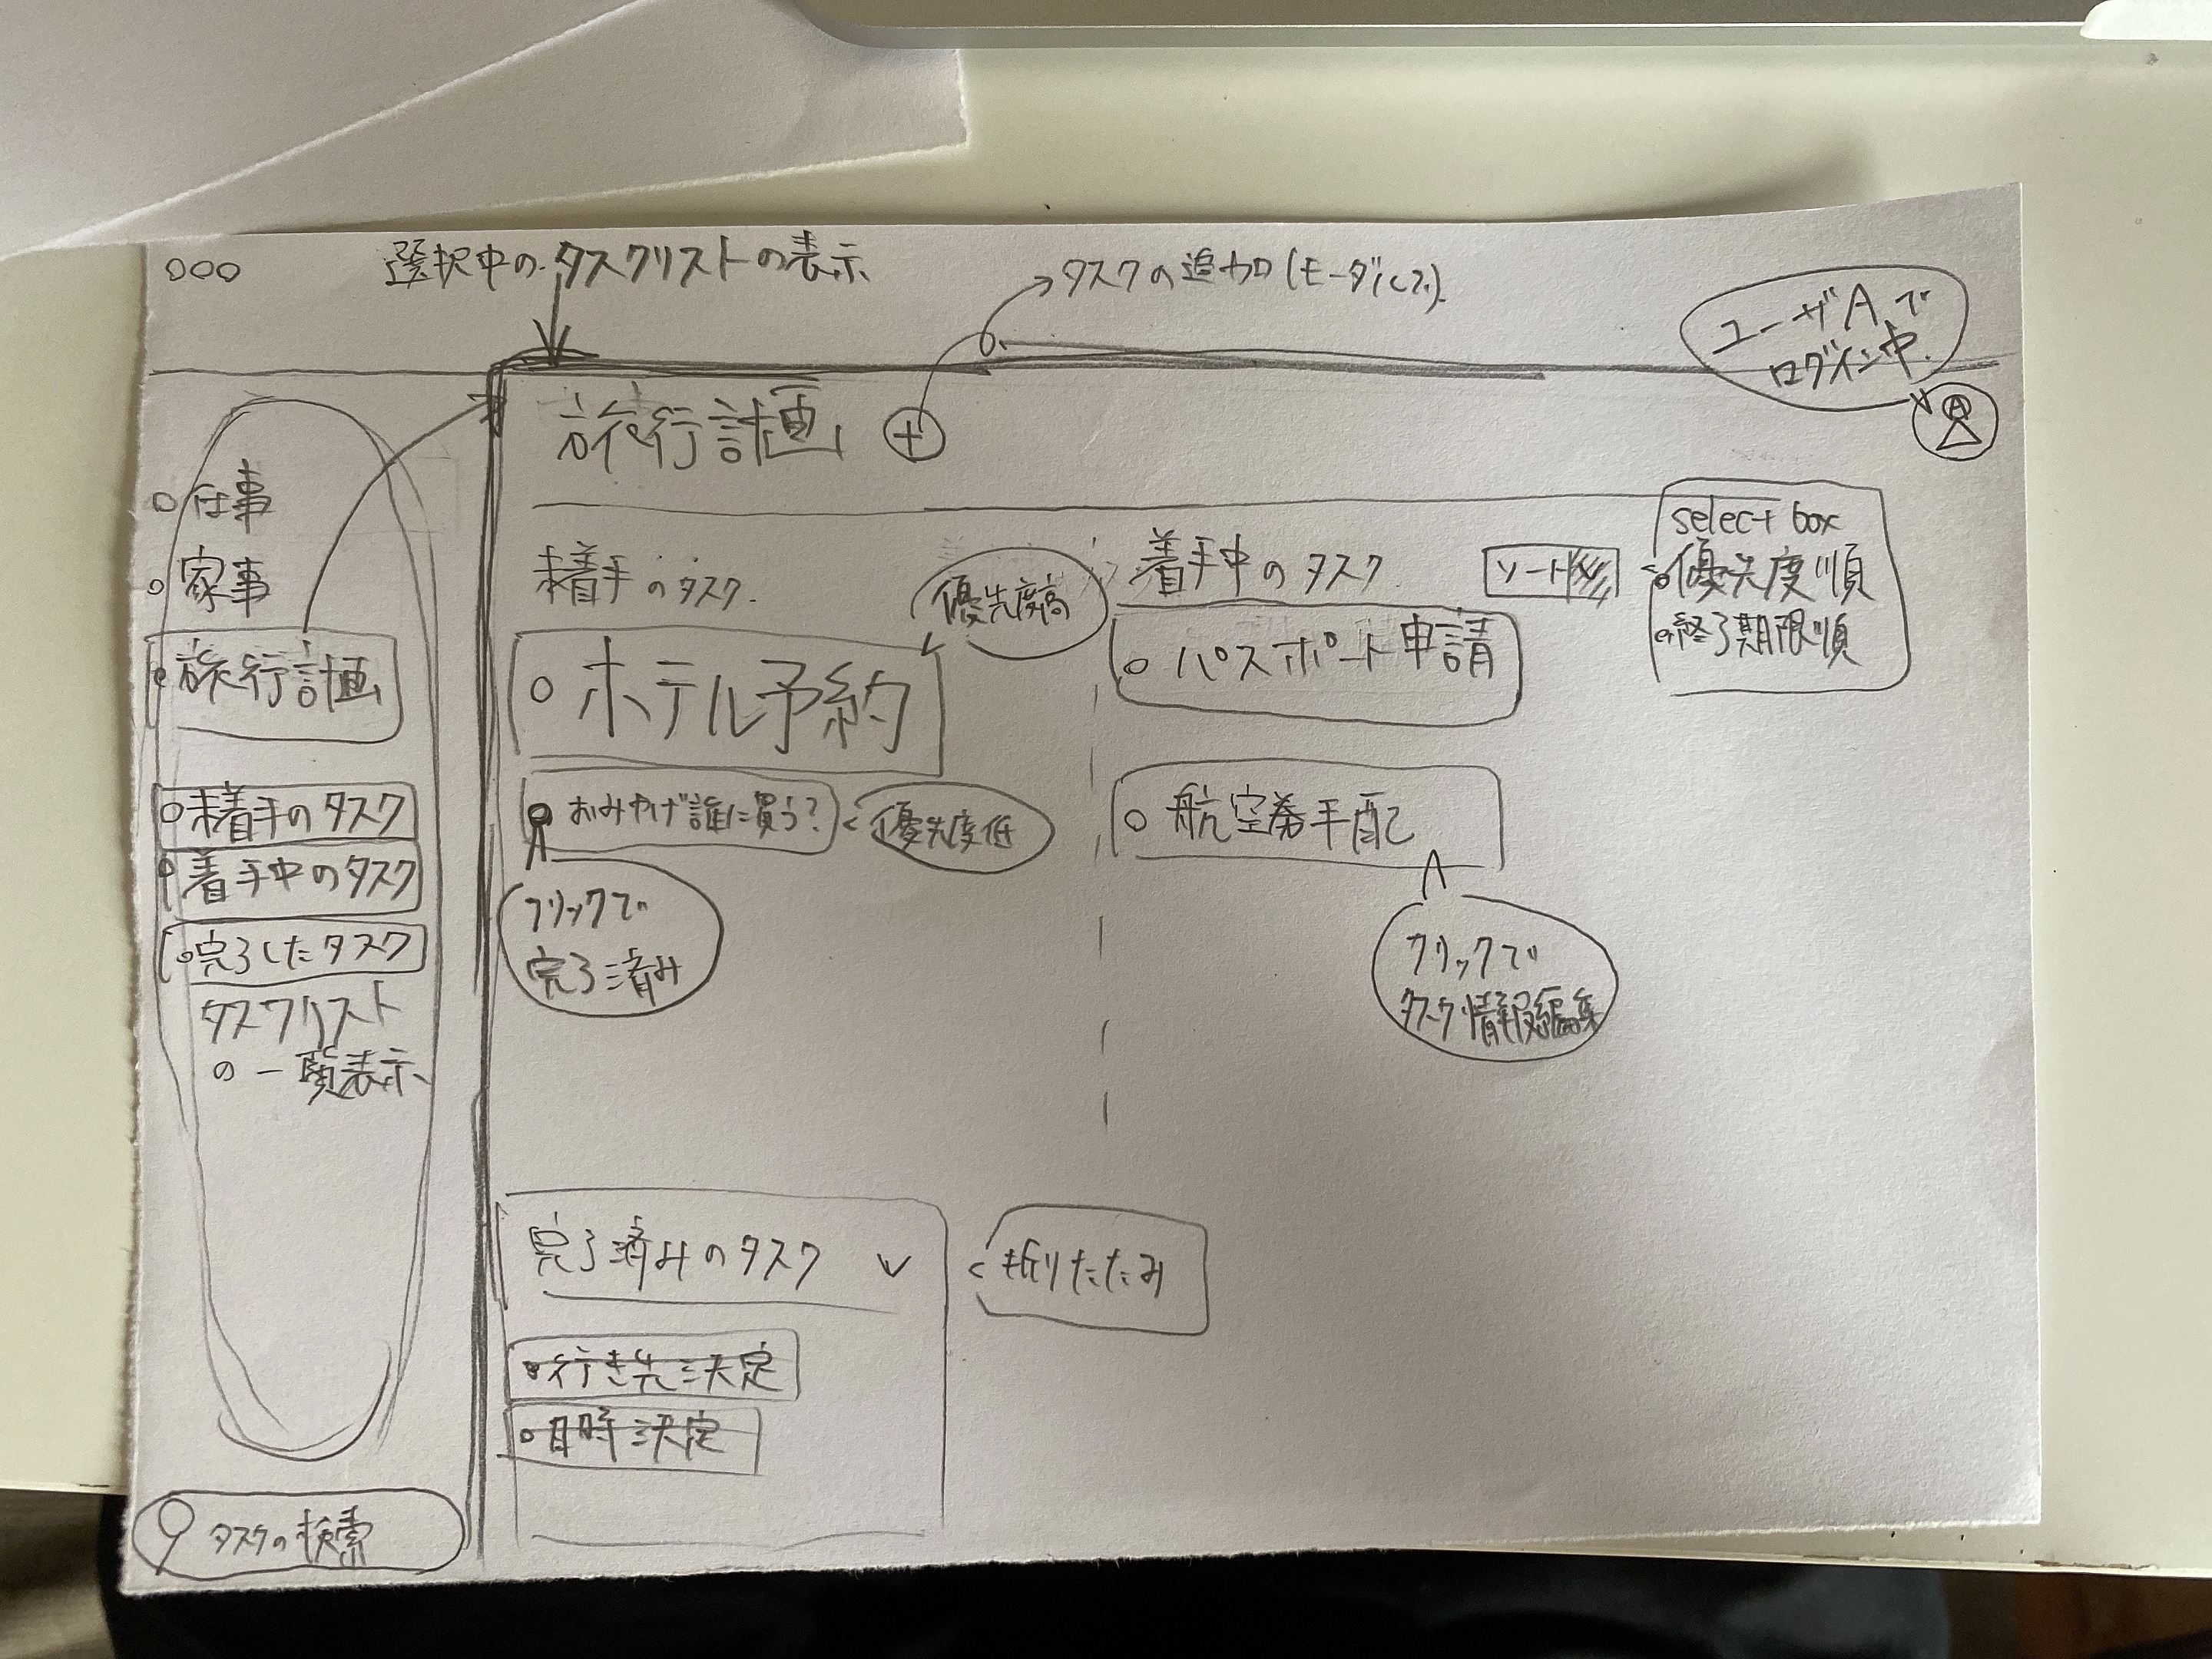 選択中のタスクリストの表示
タスクの追加(モーダルで)
ユーザAで
ログイン中.
A
旅行計画 +
仕事
家事
旅行計画
未着手のタスク
着手中のタスク
完了したタスク
タスクリスト
の一覧表示
タスクの検索
未着手のタスク.
優先度高
ホテル予約
おみやげ誰に買う?
優先度低
クリックで
完了済み
着手中のタスク
ソート
select box
優先度順
終了期限順
パスポート申請
航空券手配
クリックで
タスク情報編集
完了済みのタスク
折りたたみ
行き先決定
日時決定